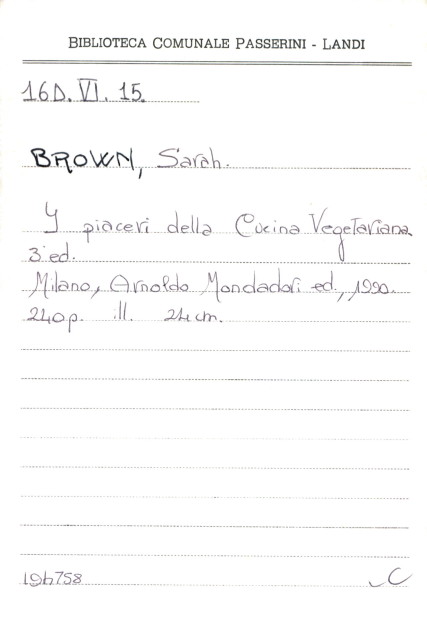 BIBLIOTECA COMUNALE PASSERINI - LANDI
16D. VI. 15.
BROWN, Sarah.
I piaceri della Cucina Vegetariana
3ª ed.
Milano, Arnoldo Mondadori ed., 1990.
240 p. ill. 24 cm.
196758
C